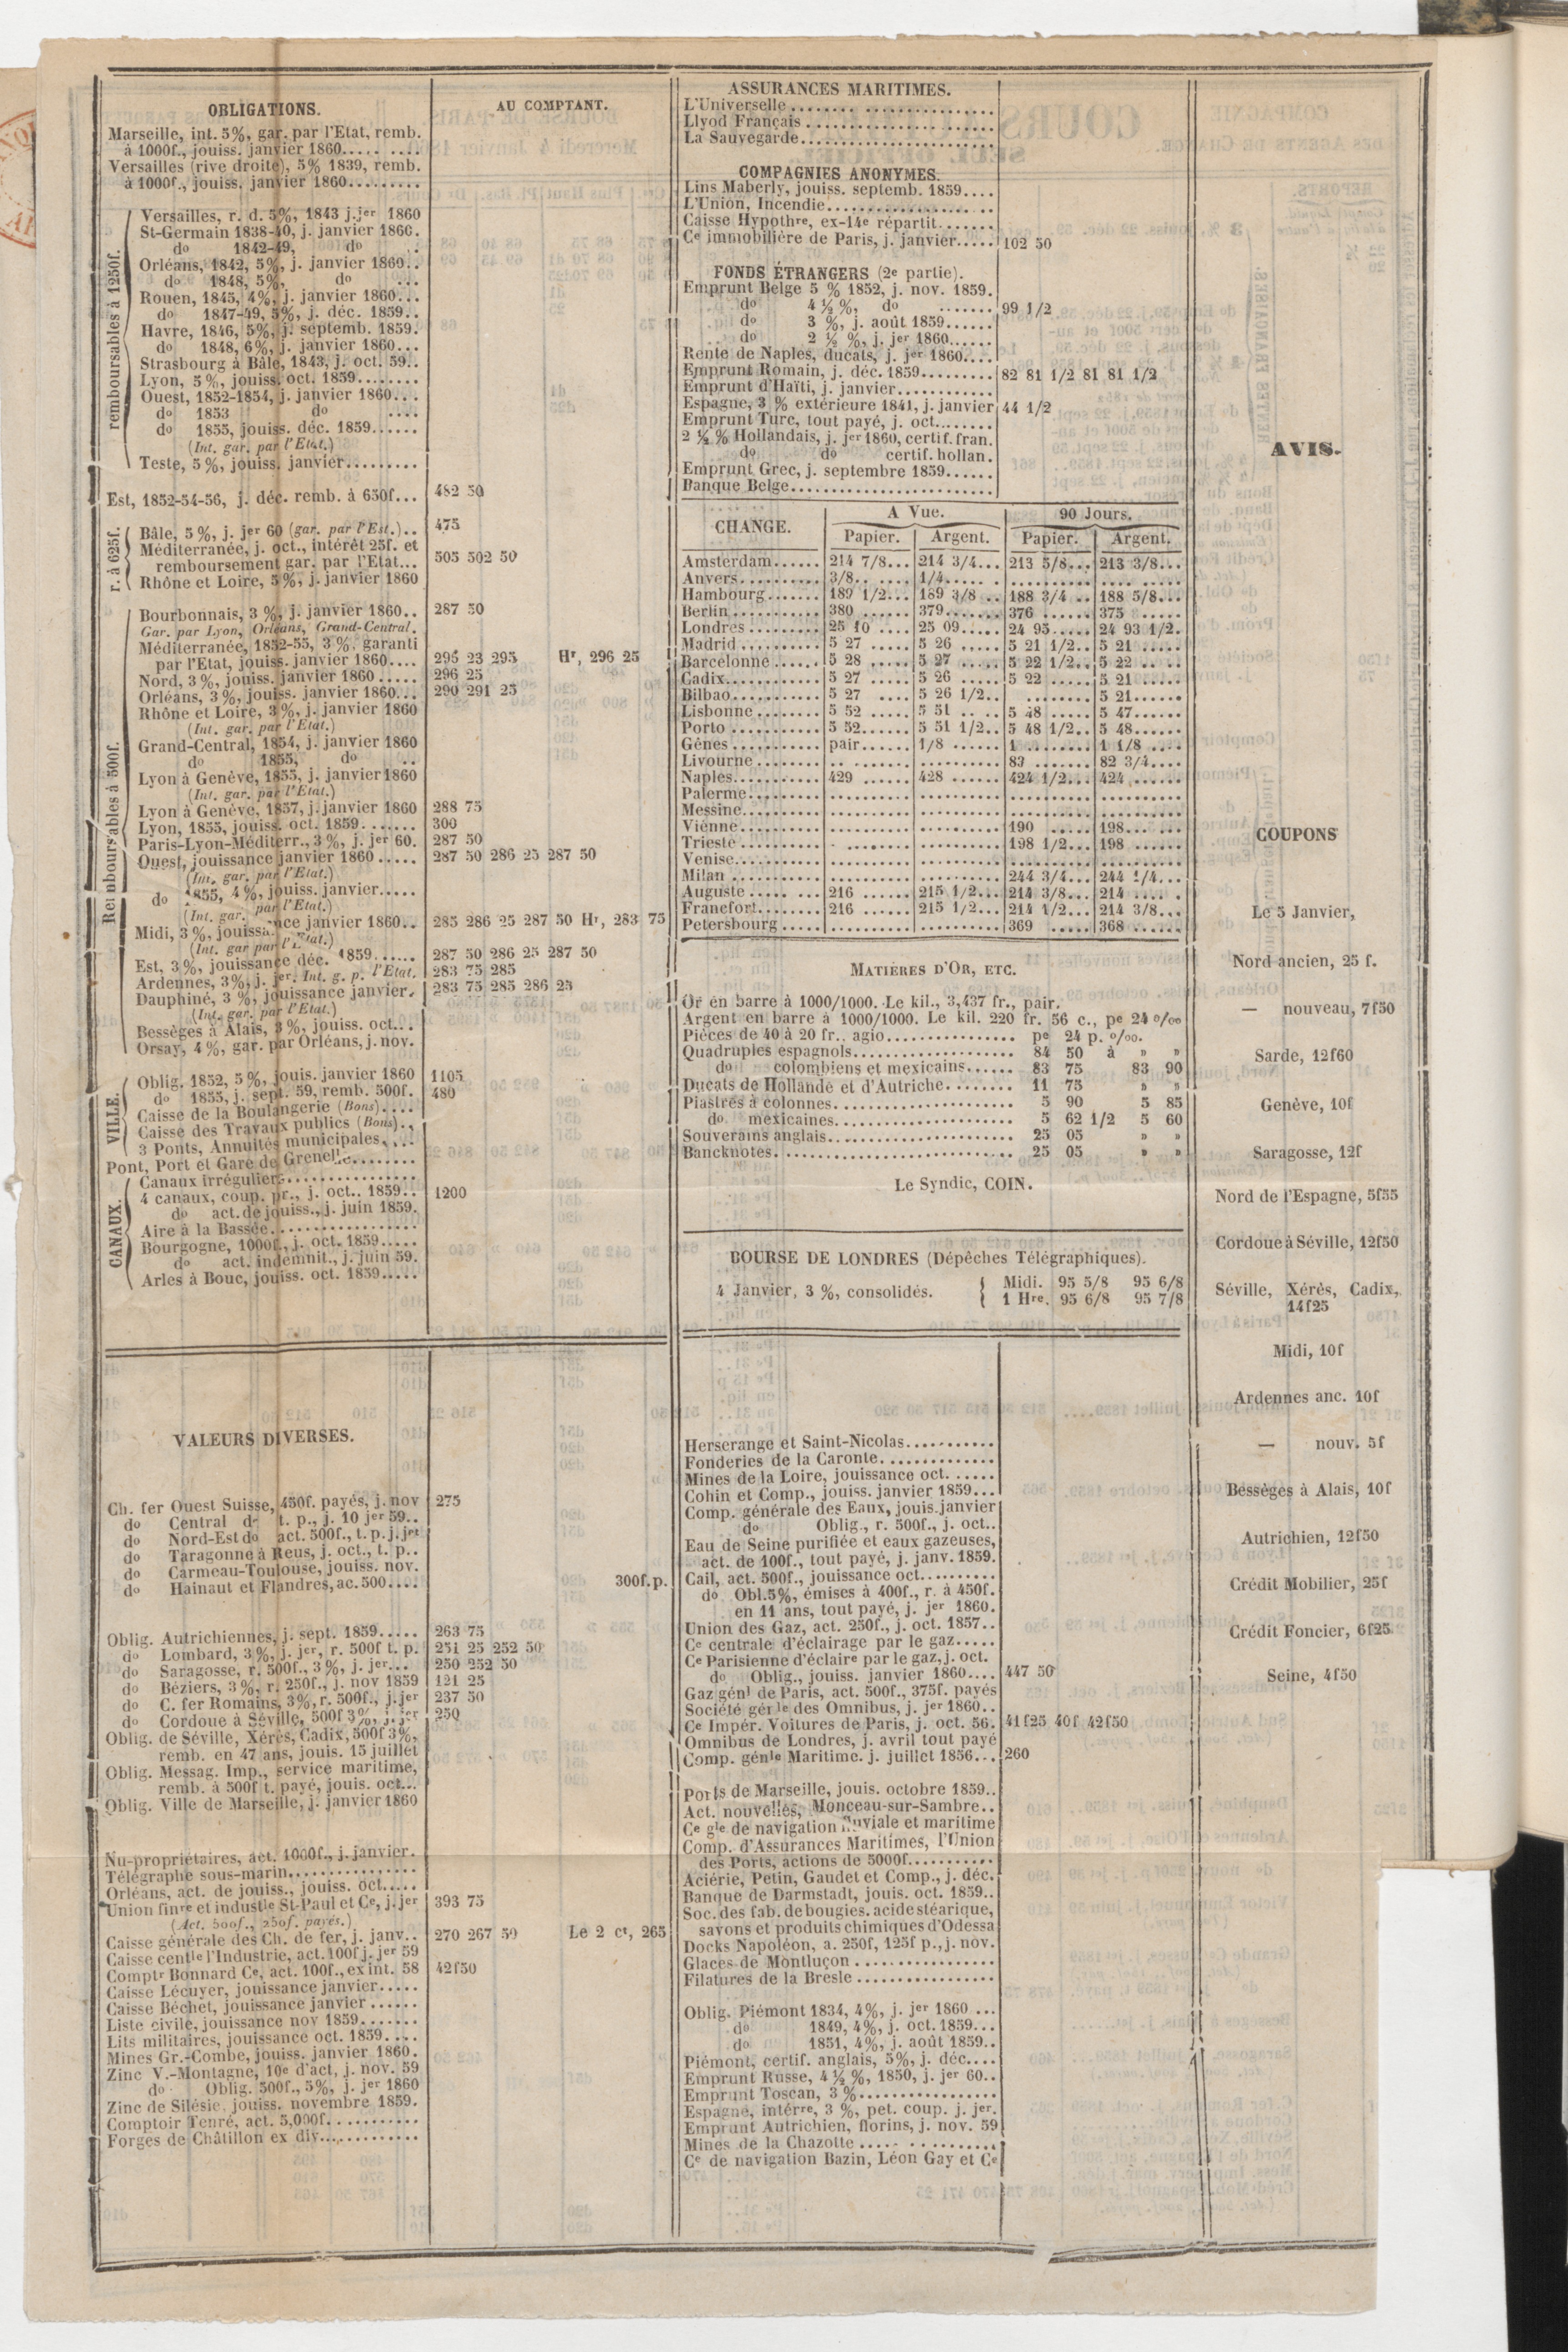 OBLIGATIONS.
AU COMPTANT.
Marseille, int. 5%, gar. par l'Etat, remb.
à 1000f., jouiss. janvier 1860
Versailles (rive droite), 5% 1839, remb.
à 1000f., jouiss. janvier 1860
remboursables à 1250f.
Versailles, r. d. 5%, 1843 j. jer 1860
St-Germain 1838-40, j. janvier 1860.
do 1842-49, do
Orléans, 1842, 5%, j. janvier 1860..
do 1848, 5%, do ...
Rouen, 1845, 4%, j. janvier 1860...
do 1847-49, 5%, j. déc. 1859..
Havre, 1846, 5%, j. septemb. 1859.
do 1848, 6%, j. janvier 1860...
Strasbourg à Bâle, 1843, j. oct. 59..
Lyon, 5%, jouiss. oct. 1859........
Ouest, 1852-1854, j. janvier 1860...
do 1853 do ....
do 1855, jouiss. déc. 1859......
(Int. gar. par l'Etat.)
Teste, 5%, jouiss. janvier.........
Est, 1852-54-56, j. déc. remb. à 650f... 482 50
r. à 625f.
Bâle, 5%, j. jer 60 (gar. par l'Est.).. 475
Méditerranée, j. oct., intérêt 25f. et
remboursement gar. par l'Etat... 505 502 50
Rhône et Loire, 5%, j. janvier 1860
Remboursables à 500f.
Bourbonnais, 3%, j. janvier 1860.. 287 50
Gar. par Lyon, Orléans, Grand-Central.
Méditerranée, 1852-55, 3%, garanti
par l'Etat, jouiss. janvier 1860.... 295 23 295 Hr, 296 25
Nord, 3%, jouiss. janvier 1860..... 296 25
Orléans, 3%, jouiss. janvier 1860... 290 291 25
Rhône et Loire, 3%, j. janvier 1860
(Int. gar. par l'Etat.)
Grand-Central, 1854, j. janvier 1860
do 1855, do ..
Lyon à Genève, 1855, j. janvier 1860
(Int. gar. par l'Etat.)
Lyon à Genève, 1857, j. janvier 1860 288 75
Lyon, 1855, jouiss. oct. 1859....... 300
Paris-Lyon-Méditerr., 3%, j. jer 60. 287 50
Ouest, jouissance janvier 1860..... 287 50 286 25 287 50
(Int. gar. par l'Etat.)
do 1855, 4%, jouiss. janvier.....
(Int. gar. par l'Etat.)
Midi, 3%, jouissance janvier 1860.. 285 286 25 287 50 Hr, 283 75
(Int. gar par l'Etat.)
Est, 3%, jouissance déc. 1859...... 287 50 286 25 287 50
Ardennes, 3%, j. jer. Int. g. p. l'Etat. 283 75 285
Dauphiné, 3%, jouissance janvier. 283 75 285 286 25
(Int. gar. par l'Etat.)
Bessèges à Alais, 3%, jouiss. oct...
Orsay, 4%, gar. par Orléans, j. nov.
VILLE.
Oblig. 1852, 5%, jouis. janvier 1860 1105
do 1855, j. sept. 59, remb. 500f. 480
Caisse de la Boulangerie (Bons)....
Caisse des Travaux publics (Bons)..
3 Ponts, Annuités municipales....
Pont, Port et Gare de Grenelle........
CANAUX.
Canaux irréguliers................
4 canaux, coup. pr., j. oct.. 1859.. 1200
do act. de jouiss., j. juin 1859.
Aire à la Bassée..................
Bourgogne, 1000f., j. oct. 1859.....
do act. indemnit., j. juin 59.
Arles à Bouc, jouiss. oct. 1859.....
VALEURS DIVERSES.
Ch. fer Ouest Suisse, 450f. payés, j. nov 275
do Central do t. p., j. 10 jer 59..
do Nord-Est do act. 500f., t. p. j. jer
do Taragonne à Reus, j. oct., t. p..
do Carmeau-Toulouse, jouiss. nov.
do Hainaut et Flandres, ac. 500.... 300f. p.
Oblig. Autrichiennes, j. sept. 1859..... 263 75
do Lombard, 3%, j. jer, r. 500f t. p. 251 25 252 50
do Saragosse, r. 500f., 3%, j. jer... 250 252 50
do Béziers, 3%, r. 250f., j. nov 1859 121 25
do C. fer Romains, 3%, r. 500f., j. jer 237 50
do Cordoue à Séville, 500f 3%, j. jer 250
Oblig. de Séville, Xérès, Cadix, 500f 3%,
remb. en 47 ans, jouis. 15 juillet
Oblig. Messag. Imp., service maritime,
remb. à 500f t. payé, jouis. oct...
Oblig. Ville de Marseille, j. janvier 1860
Nu-propriétaires, act. 1000f., j. janvier.
Télégraphe sous-marin...............
Orléans, act. de jouiss., jouiss. oct.....
Union finre et industle St-Paul et Ce, j. jer 393 75
(Act. 500f., 250f. payés.)
Caisse générale des Ch. de fer, j. janv.. 270 267 50 Le 2 ct, 265
Caisse centle l'Industrie, act. 100f j. jer 59
Comptr Bonnard Ce, act. 100f., ex int. 58 42f50
Caisse Lécuyer, jouissance janvier.....
Caisse Béchet, jouissance janvier......
Liste civile, jouissance nov 1859.......
Lits militaires, jouissance oct. 1859....
Mines Gr.-Combe, jouiss. janvier 1860.
Zinc V.-Montagne, 10e d'act, j. nov. 59
do Oblig. 500f., 5%, j. jer 1860
Zinc de Silésie, jouiss. novembre 1859.
Comptoir Tenré, act. 5,000f...........
Forges de Châtillon ex div............
ASSURANCES MARITIMES.
L'Universelle
Llyod Français
La Sauvegarde
COMPAGNIES ANONYMES.
Lins Maberly, jouiss. septemb. 1859....
L'Union, Incendie....................
Caisse Hypothre, ex-14e répartit.......
Ce immobilière de Paris, j. janvier..... 102 50
FONDS ÉTRANGERS (2e partie).
Emprunt Belge 5 % 1852, j. nov. 1859.
do 4 ½ %, do ....... 99 1/2
do 3 %, j. août 1859......
do 2 ½ %, j. jer 1860......
Rente de Naples, ducats, j. jer 1860....
Emprunt Romain, j. déc. 1859......... 82 81 1/2 81 81 1/2
Emprunt d'Haïti, j. janvier............
Espagne, 3 % extérieure 1841, j. janvier 44 1/2
Emprunt Turc, tout payé, j. oct........
2 ½ % Hollandais, j. jer 1860, certif. fran.
do do certif. hollan.
Emprunt Grec, j. septembre 1859......
Banque Belge........................
CHANGE. A Vue. 90 Jours.
Papier. Argent. Papier. Argent.
Amsterdam...... 214 7/8... 214 3/4... 213 5/8... 213 3/8...
Anvers.......... 3/8.. 1/4.....
Hambourg....... 189 1/2... 189 3/8 .. 188 3/4 .. 188 5/8...
Berlin........... 380 ...... 379....... 376 ...... 375 ......
Londres......... 25 10 .... 25 09..... 24 95..... 24 93 1/2.
Madrid.......... 5 27 ..... 5 26 ..... 5 21 1/2.. 5 21 .....
Barcelonne...... 5 28 ..... 5 27 ..... 5 22 1/2.. 5 22 .....
Cadix............ 5 27 ..... 5 26 ..... 5 22 ..... 5 21 .....
Bilbao........... 5 27 .... 5 26 1/2.. ........ 5 21......
Lisbonne........ 5 52 ..... 5 51 ..... 5 48 ..... 5 47......
Porto ........... 5 52...... 5 51 1/2.. 5 48 1/2.. 5 48......
Gênes........... pair...... 1/8 ...... 1 ........ 1 1/8 ....
Livourne........ 83 ....... 82 3/4....
Naples........... 429 ...... 428 ...... 424 1/2... 424 ......
Palerme.........
Messine..........
Vienne.......... 190 ..... 198......
Trieste.......... 198 1/2... 198 ......
Venise...........
Milan ........... 244 3/4... 244 1/4...
Auguste......... 216 ...... 215 1/2... 214 3/8... 214 .....
Francfort........ 216 ...... 215 1/2... 214 1/2... 214 3/8...
Petersbourg..... 369 ..... 368 ......
MATIÈRES D'OR, ETC.
Or en barre à 1000/1000. Le kil., 3,437 fr., pair.
Argent en barre à 1000/1000. Le kil. 220 fr. 56 c., pe 24 o/oo
Pièces de 40 à 20 fr., agio................ pe 24 p. o/oo.
Quadruples espagnols.................... 84 50 à » »
do colombiens et mexicains...... 83 75 83 90
Ducats de Hollande et d'Autriche........ 11 75 » »
Piastres à colonnes...................... 5 90 5 85
do mexicaines...................... 5 62 1/2 5 60
Souverains anglais....................... 25 05 » »
Bancknotes............................. 25 05 » »
Le Syndic, COIN.
BOURSE DE LONDRES (Dépêches Télégraphiques).
4 Janvier, 3 %, consolidés. { Midi. 95 5/8 95 6/8
{ 1 Hre. 95 6/8 95 7/8
Herserange et Saint-Nicolas...........
Fonderies de la Caronte..............
Mines de la Loire, jouissance oct. .....
Cohin et Comp., jouiss. janvier 1859...
Comp. générale des Eaux, jouis. janvier
do Oblig., r. 500f., j. oct..
Eau de Seine purifiée et eaux gazeuses,
act. de 100f., tout payé, j. janv. 1859.
Cail, act. 500f., jouissance oct.........
do Obl. 5%, émises à 400f., r. à 450f.
en 11 ans, tout payé, j. jer 1860.
Union des Gaz, act. 250f., j. oct. 1857..
Ce centrale d'éclairage par le gaz.....
Ce Parisienne d'éclaire par le gaz, j. oct.
do Oblig., jouiss. janvier 1860.... 447 50
Gaz génl de Paris, act. 500f., 375f. payés
Société gérle des Omnibus, j. jer 1860..
Ce Impér. Voitures de Paris, j. oct. 56. 41f25 40f 42f50
Omnibus de Londres, j. avril tout payé
Comp. génle Maritime. j. juillet 1856... 260
Ports de Marseille, jouis. octobre 1859..
Act. nouvelles, Monceau-sur-Sambre..
Ce gle de navigation fluviale et maritime
Comp. d'Assurances Maritimes, l'Union
des Ports, actions de 5000f...........
Aciérie, Petin, Gaudet et Comp., j. déc.
Banque de Darmstadt, jouis. oct. 1859..
Soc. des fab. de bougies. acide stéarique,
savons et produits chimiques d'Odessa
Docks Napoléon, a. 250f, 125f p., j. nov.
Glaces de Montluçon
Filatures de la Bresle
Oblig. Piémont 1834, 4%, j. jer 1860 ...
do 1849, 4%, j. oct. 1859...
do 1851, 4%, j. août 1859..
Piémont, certif. anglais, 5%, j. déc....
Emprunt Russe, 4 ½ %, 1850, j. jer 60..
Emprunt Toscan, 3 %
Espagne, intérre, 3 %, pet. coup. j. jer.
Emprunt Autrichien, florins, j. nov. 59
Mines de la Chazotte
Ce de navigation Bazin, Léon Gay et Ce
AVIS.
COUPONS
Le 5 Janvier,
Nord ancien, 25 f.
— nouveau, 7f50
Sarde, 12f60
Genève, 10f
Saragosse, 12f
Nord de l'Espagne, 5f55
Cordoue à Séville, 12f50
Séville, Xérès, Cadix,
14f25
Midi, 10f
Ardennes anc. 10f
— nouv. 5f
Bessèges à Alais, 10f
Autrichien, 12f50
Crédit Mobilier, 25f
Crédit Foncier, 6f25
Seine, 4f50